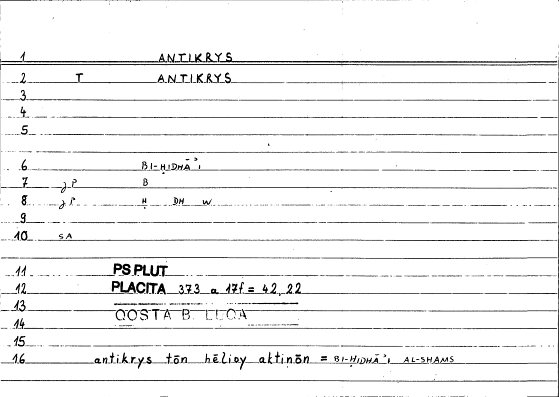 1 ANTIKRYS
2 T ANTIKRYS
3
4
5
6 BI-ḤIDHĀʾI
7 JP B
8 JP Ḥ DH W
9
10 SA
11 PS.PLUT
12 PLACITA 373 a 17f = 42,22
13
14 QOSTA B. LUQA
15
16 antikrys tōn hēlioy aktinōn = BI-ḤIDHĀʾI AL-SHAMS